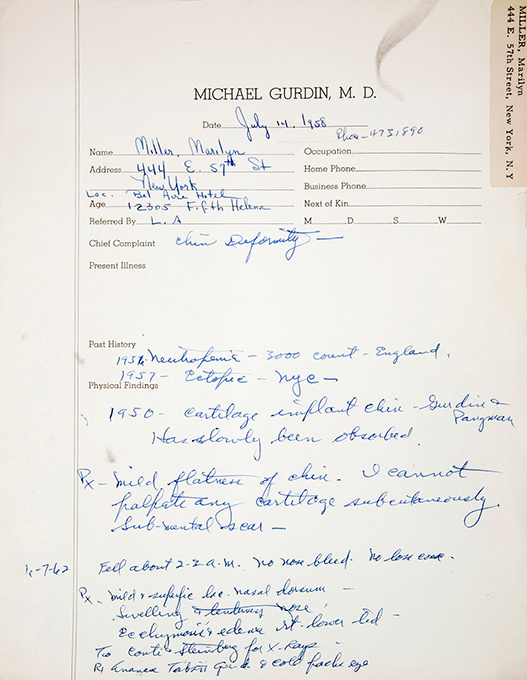 MILLER, Marilyn
444 E. 57th Street, New York, N.Y
MICHAEL GURDIN, M. D.
Date July 14, 1958
Phone - 4731890
Name Miller, Marilyn Occupation
Address 444 E. 57th St Home Phone
New York Business Phone
Loc. Bel Aire Hotel
Age 12305 Fifth Helena Next of Kin
Referred By L.A M D S W
Chief Complaint Chin Deformity -
Present Illness
Past History
1956 - Neutropenia - 3000 count - England.
1957 - Ectopic - NYC -
Physical Findings
1950 - cartilage implant chin - Gurdin &
Pangman
Has slowly been absorbed.
Px - Mild flatness of chin. I cannot
palpate any cartilage subcutaneously.
Sub-mental scar -
6-7-62 Fell about 2-2 a.m. No nose bleed. No lose
Px - Mild & nasal dorsum -
Swelling & tenderness nose
Ecchymosis & edema rt. lower lid -
To Conti & Steinberg for X-Rays -
& cold packs eye